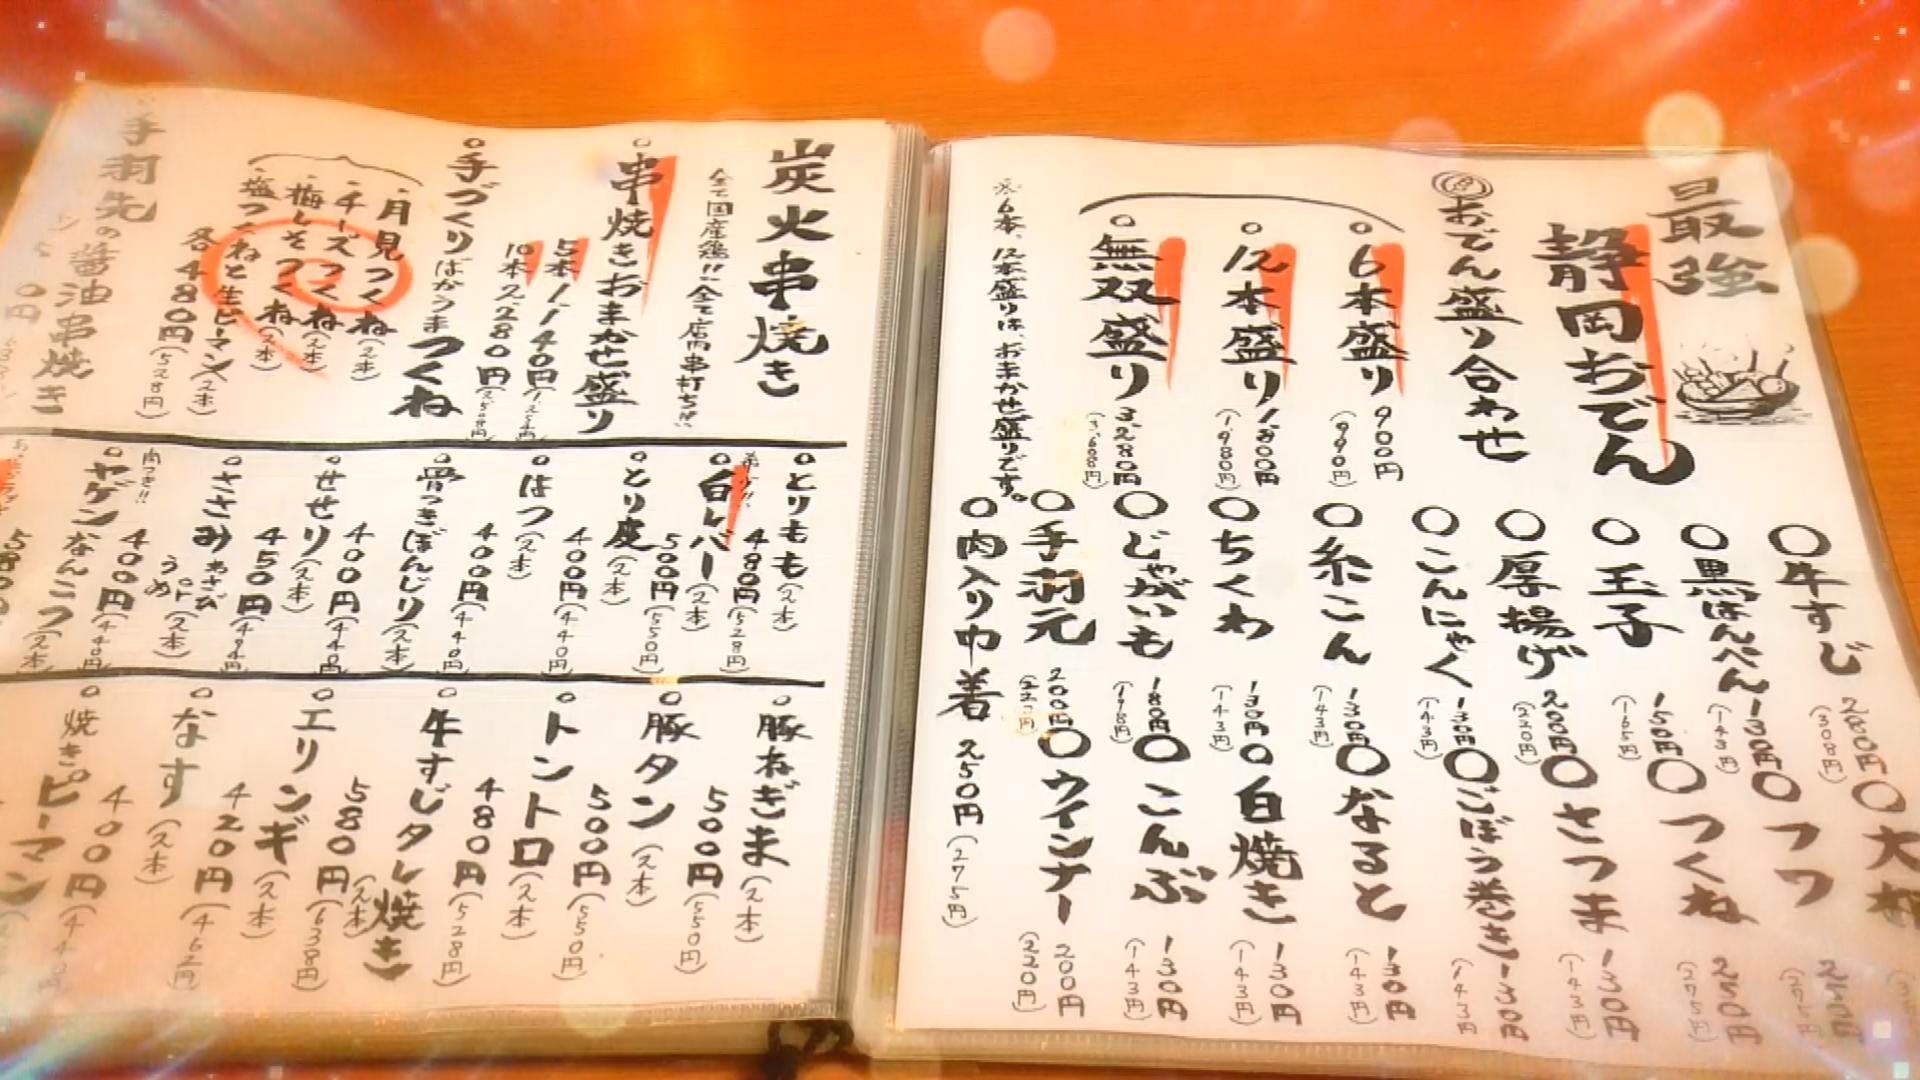 最強
静岡おでん
おでん盛り合わせ
○6本盛り 900円(990円)
○12本盛り 1,800円(1,980円)
○無双盛り 3,280円(3,608円)
※6本、12本盛りは、おまかせ盛りです。
○牛すじ 280円(308円)
○黒はんぺん 130円(143円)
○玉子 150円(165円)
○厚揚げ 200円(220円)
○こんにゃく 130円(143円)
○糸こん 130円(143円)
○ちくわ 130円(143円)
○じゃがいも 180円(198円)
○手羽元 200円(220円)
○肉入り巾着 250円(275円)
○大根
○フワ 250円(275円)
○つくね 250円(275円)
○さつま 130円(143円)
○ごぼう巻き 130円(143円)
○なると 130円(143円)
○白焼き 130円(143円)
○こんぶ 130円(143円)
○ウインナー 200円(220円)
炭火串焼き
全て国産鶏!!全て店内串打ち!!
○串焼きおまかせ盛り
5本 1,140円(1,254円)
10本 2,280円(2,508円)
○手づくりばかうまつくね
・月見つくね(2本)
・チーズつくね(2本)
・梅しそつくね(2本)
・塩つくねと生ピーマン(2本)
各480円(528円)
手羽先の醤油串焼き
○とりもも(2本) 480円(528円)
○白レバー(2本) 500円(550円)
○とり皮(2本) 400円(440円)
○はつ(2本) 400円(440円)
○骨つきぼんじり(2本) 400円(440円)
○せせり(2本) 450円(494円)
○ささみ わさび or うめ(2本) 400円(440円)
肉つき!!
○ヤゲンなんこつ(2本) 580円
○豚ねぎま(2本) 500円(550円)
○豚タン(2本) 500円(550円)
○トントロ(2本) 480円(528円)
○牛すじタレ焼き(2本) 580円(638円)
○エリンギ(2本) 420円(462円)
○なす(2本) 400円(440円)
○焼きピーマン